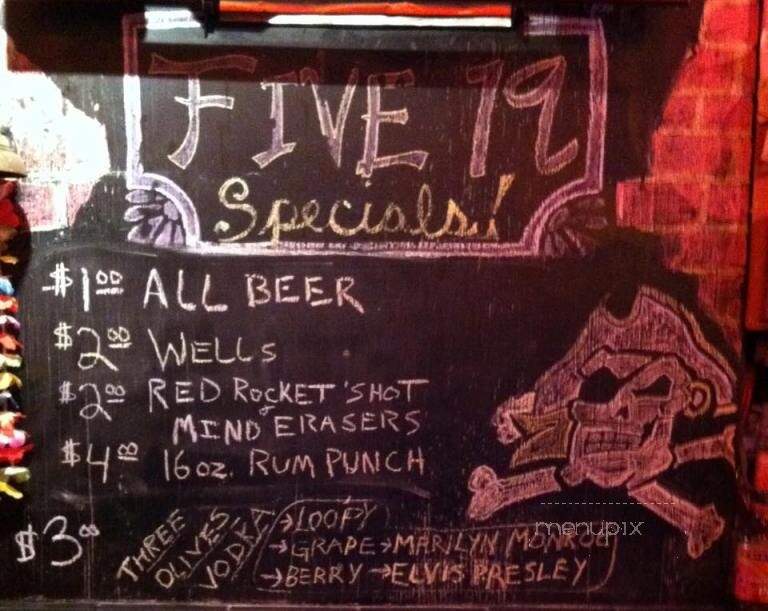 FIVE 19
Specials!
$1.00 ALL BEER
$2.00 WELLS
$2.00 RED ROCKET SHOT
& MIND ERASERS
$4.00 16oz. RUM PUNCH
$3.00 THREE OLIVES VODKA
→LOOPY
→GRAPE →MARILYN MONROE
→BERRY →ELVIS PRESLEY
menupix